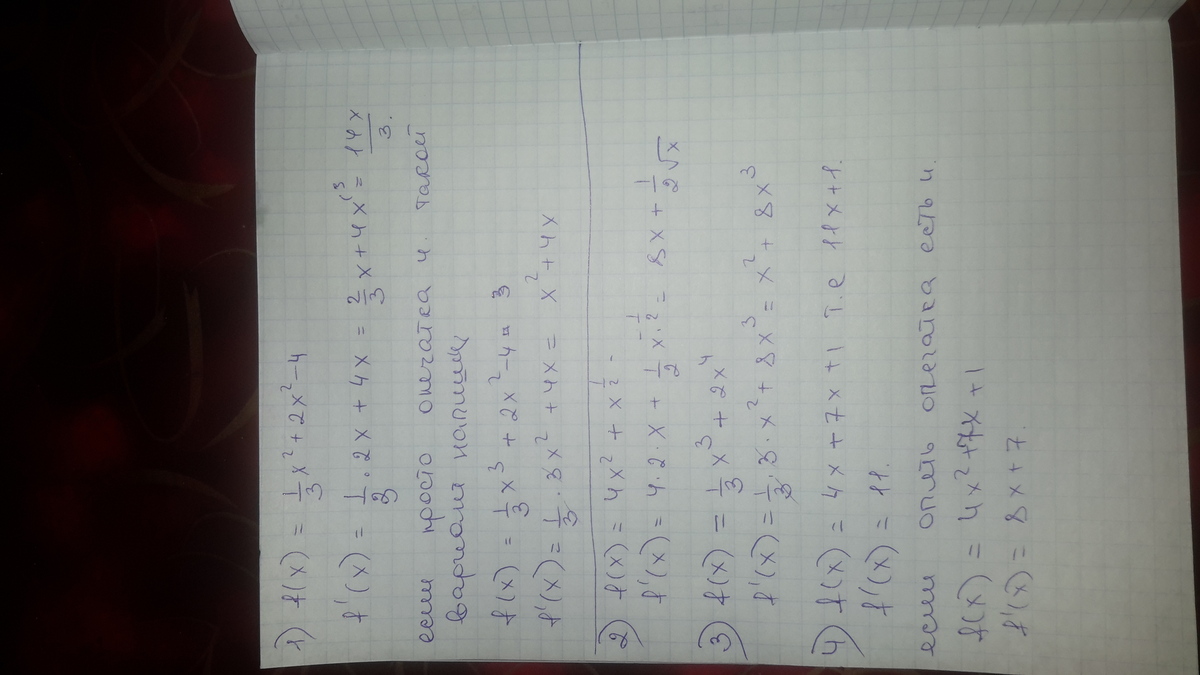 1) f(x) = 1/3 x² + 2x² - 4
f'(x) = 1/3 · 2x + 4x = 2/3 x + 4x = 14x/3.
если просто опечатка и такой
вариант напишу
f(x) = 1/3 x³ + 2x² - 4 =
f'(x) = 1/3 · 3x² + 4x = x² + 4x
2) f(x) = 4x² + x^1/2
f'(x) = 4 · 2 · x + 1/2 x^-1/2 = 8x + 1/2√x
3) f(x) = 1/3 x³ + 2x⁴
f'(x) = 1/3 · 3 · x² + 8x³ = x² + 8x³
4) f(x) = 4x + 7x + 1 т.е 11x + 1.
f'(x) = 11.
если опять опечатка есть и.
f(x) = 4x² + 7x + 1
f'(x) = 8x + 7.